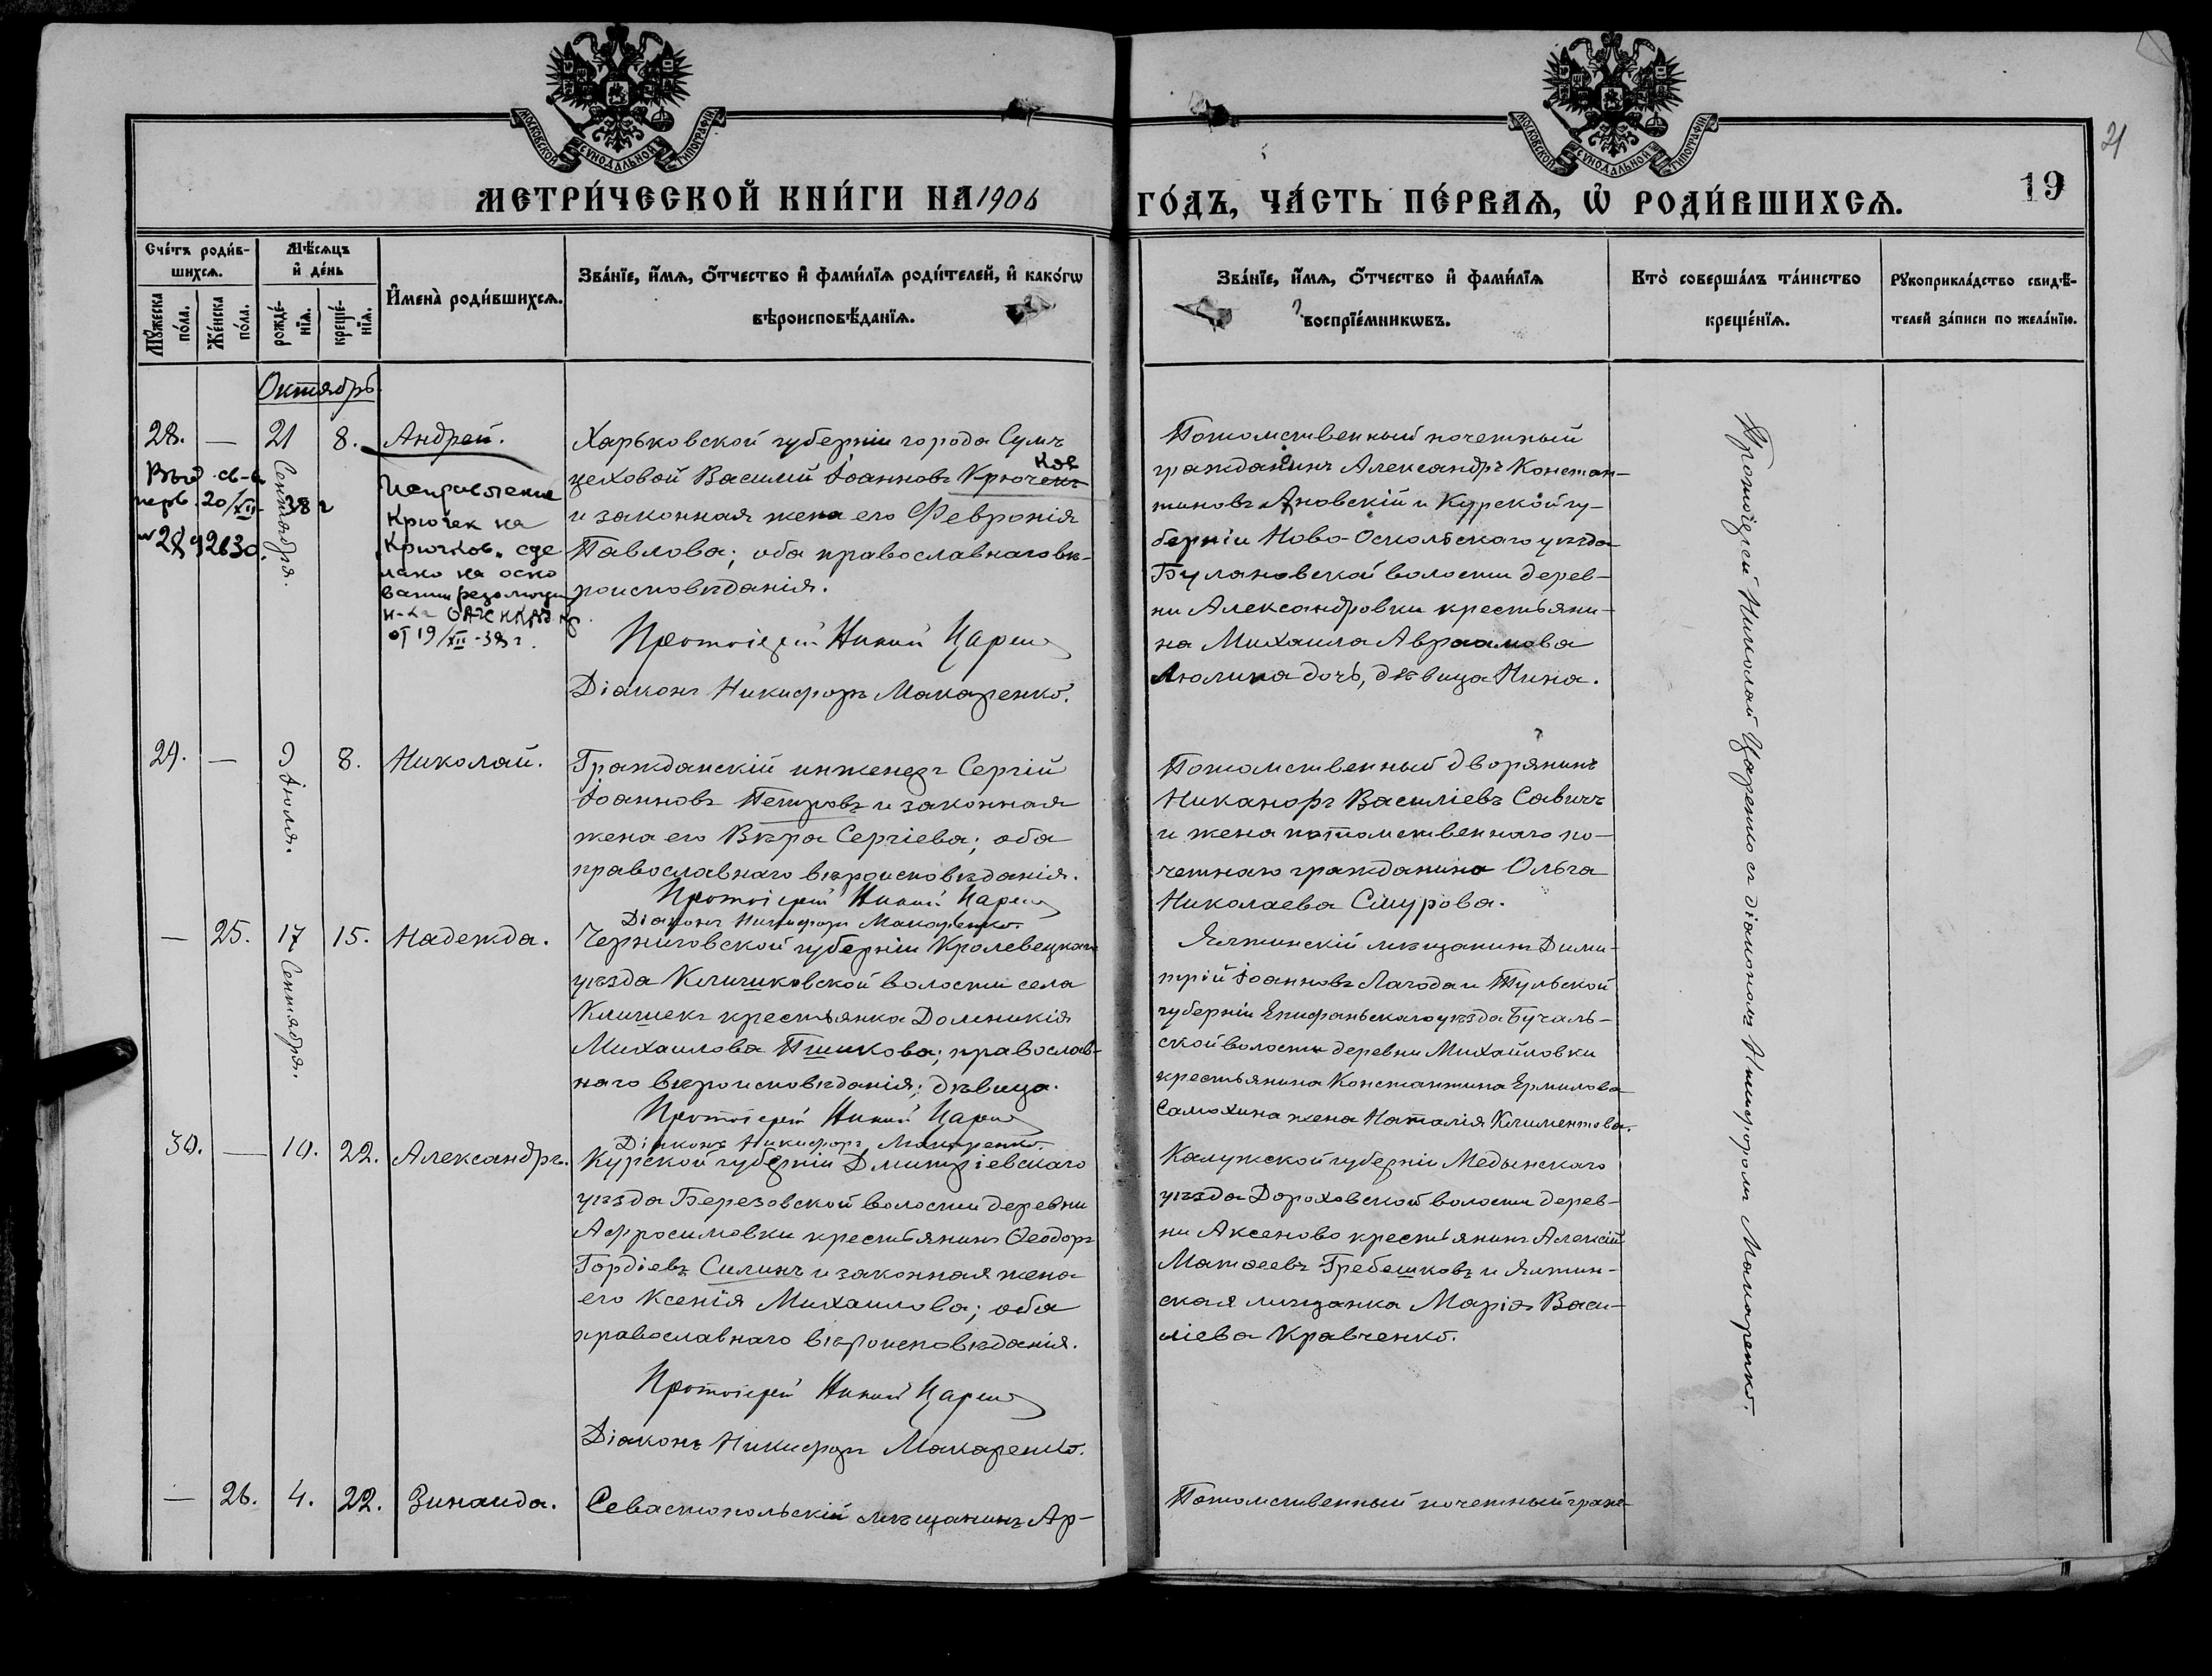 МОСКОВСКОЙ СѴНОДАЛЬНОЙ ТИПОГРАФІИ
МОСКОВСКОЙ СѴНОДАЛЬНОЙ ТИПОГРАФІИ
21
МЕТРИ́ЧЕСКОЙ КНИ́ГИ НА 1906
ГО́ДЪ, ЧА́СТЬ ПЕ́РВАѦ, Ѽ РОДИ́ВШИХСѦ.
19
Сче́тъ роди́в-
шихсѧ.
Мꙋ́жеска
по́ла.
Же́нска
по́ла.
Мѣ́сѧцъ
и҆ де́нь
рожде́-
нїѧ.
креще́-
нїѧ.
И҆мена̀ роди́вшихсѧ.
Зва́нїе, и҆́мѧ, ѻ҆́тчество и҆ фами́лїѧ роди́телей, и҆ како́гѡ
вѣроисповѣ́данїѧ.
Зва́нїе, и҆́мѧ, ѻ҆́тчество и҆ фами́лїѧ
воспрїе́мникѡвъ.
Кто̀ соверша́лъ та́инство
креще́нїѧ.
Рꙋкоприкла́дство свидѣ́-
телей за́писи по жела́нїю.
Октябрь
28. — 21 8. Андрей.
Сентября.
Выд. св-в
перв. 20/XII 38 г
№ 2892630.
Исправление
Крючек на
„Крючков„ сде
лано на осно
вании резолюции
н-ка ОАГС НКВД
от 19/XII-38 г.
Харьковской губерніи города Сумъ
цеховой Василій Іоанновъ Крючекъ
ков
и законная жена его Февронія
Павлова; оба православнаго вѣ-
роисповѣданія.
Протоіерей
Діаконъ Никифоръ Макаренко.
Потомственный почетный
гражданинъ Александръ Констан-
тиновъ Яновскій и Курской гу-
берніи Ново-Оскольскаго уѣзда
Булановской волости дерев-
ни Александровки крестьяни-
на Михаила Авраамова
Люлина дочь, дѣвица Нина.
Протоіерей Николай Царенко съ діакономъ Никифоромъ Макаренко.
29. — 9 8. Николай.
Іюля.
Гражданскій инженеръ Сергій
Іоанновъ Петровъ и законная
жена его Вѣра Сергіева; оба
православнаго вѣроисповѣданія.
Протоіерей
Діаконъ Никифоръ Макаренко.
Потомственный дворянинъ
Никаноръ Василіевъ Савичъ
и жена потомственнаго по-
четнаго гражданина Ольга
Николаева Смурова.
— 25. 17 15. Надежда.
Сентября.
Черниговской губерніи Кролевецкаго
уѣзда Клишковской волости села
Клишекъ крестьянка Домникія
Михаилова Пшикова; православ-
наго вѣроисповѣданія; дѣвица.
Протоіерей
Діаконъ Никифоръ Макаренко.
Ялтинскій мѣщанинъ Дими-
трій Іоанновъ Лагода и Тульской
губерніи Епифаньскаго уѣзда Бучаль-
ской волости деревни Михайловки
крестьянина Константина Ермилова
Самохина жена Наталія Климентова.
30. — 10. 22. Александръ.
Курской губерніи Дмитріевскаго
уѣзда Березовской волости деревни
Афросимовки крестьянинъ Ѳеодоръ
Гордіевъ Силинъ и законная жена
его Ксенія Михаилова; оба
православнаго вѣроисповѣданія.
Протоіерей
Діаконъ Никифоръ Макаренко.
Калужской губерніи Медынскаго
уѣзда Дороховской волости дерев-
ни Аксеново крестьянинъ Алексій
Матѳеевъ Гребешковъ и Ялтин-
ская мѣщанка Марія Васи-
ліева Кравченко.
— 26. 4. 22. Зинаида.
Севастопольскій мѣщанинъ Ар-
Потомственный почетный граж-